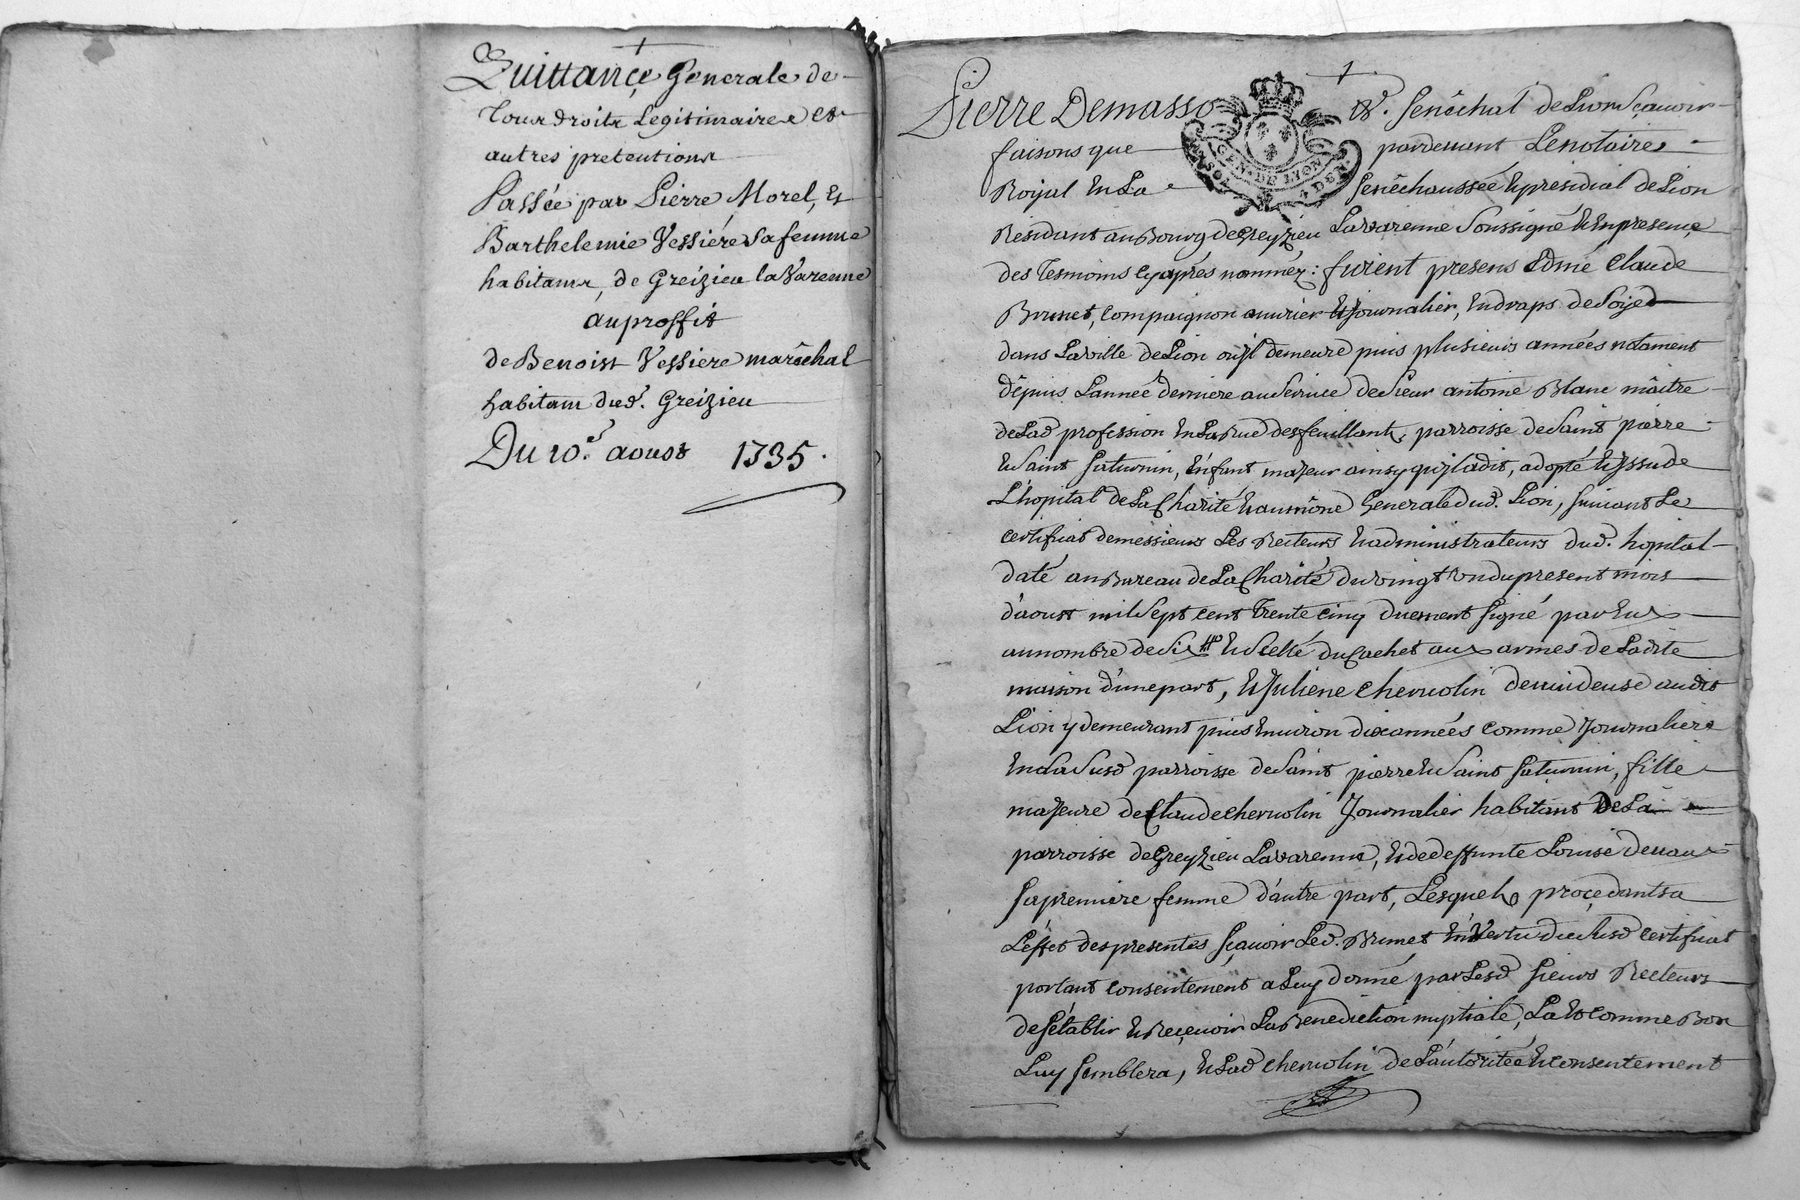 Quittançe Generale de
Tous droits Legitimaires et
autres pretentions
Passée par Pierre Morel, Et
Barthelemie Vessiere sa femme
habitans, de Greizieu la Varenne
au proffit
de Benoist Vessiere marêchal
habitant dud. Greizieu
Du 10.e aoust 1735.
Pierre Demasso sr. Senêchal de Lion Sçavoir
faisons que pardevant Le notaire
Royal En La Senêchaussée & presidial de Lion
GEN. DE LYON
Residant au Bourg de Greyzieu Lavarenne Soussigné & En presençe
des Tesmoins cy après nommez : furent presens Edmé Claude
Brunet, Compaignon ouvrier & Journalier, En draps de Soÿe
dans La ville de Lion ou jl demeure puis plusieurs années notament
dêpuis L'année derniere au Service de Sieur antoine Blanc mâitre
de Lad profession En La Rue des feuillants, parroisse de Saint pierre
& Saint Saturnin, Enfant majeur ainsy qu'jl a dit, adopté & jssu de
L'hopital de La Charité & aumône Generale dud. Lion, suivant Le
certificat de messieurs Les Recteurs & administrateurs dud. hopital
daté au Bureau de La Charité du vingt un du present mois
d'aoust mil Sept cent Trente cinq duement signé par Eux
au nombre de Six & Scellé du Cachet aux armes de Ladite
maison d'une part, & Juliene Chervolin devuideuse audit
Lion y demeurant puis Environ dix années comme Journaliere
En La Susd parroisse de Saint pierre & Saint Saturnin, fille
majeure de Claude Chervolin Journalier habitant De La
parroisse de Greyzieu Lavarenne, & de deffunte Louise Devaux
sa premiere femme d'autre part, Lesquels proçedants a
L'effet des presentes sçavoir Led. Brunet En Vertu du Susd certificat
portant consentement a Luy donné par Lesd sieurs Recteurs
de s'établir & Reçevoir La Benediction nuptiale, La & comme Bon
Luy semblera, & Lad Chervolin de L'autoritée & consentement